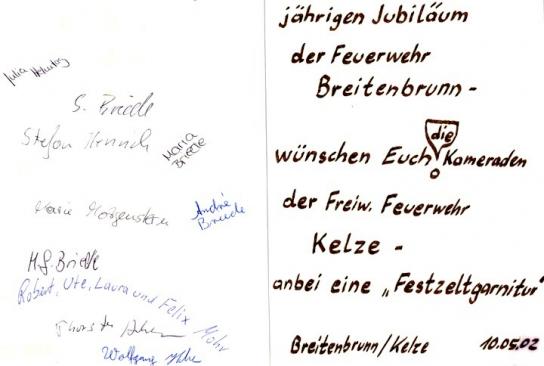 Julia
S. Briede
Stefan Hennich
Maria
Briede
Marie Morgenstern
André
Briede
M. J. Briede
Robert, Ute, Laura und Felix Mohr
Thorsten
Wolfgang
jährigen Jubiläum
der Feuerwehr
Breitenbrunn -
die
wünschen Euch Kameraden
der Freiw. Feuerwehr
Kelze -
anbei eine „Festzeltgarnitur"
Breitenbrunn/Kelze 10.05.02